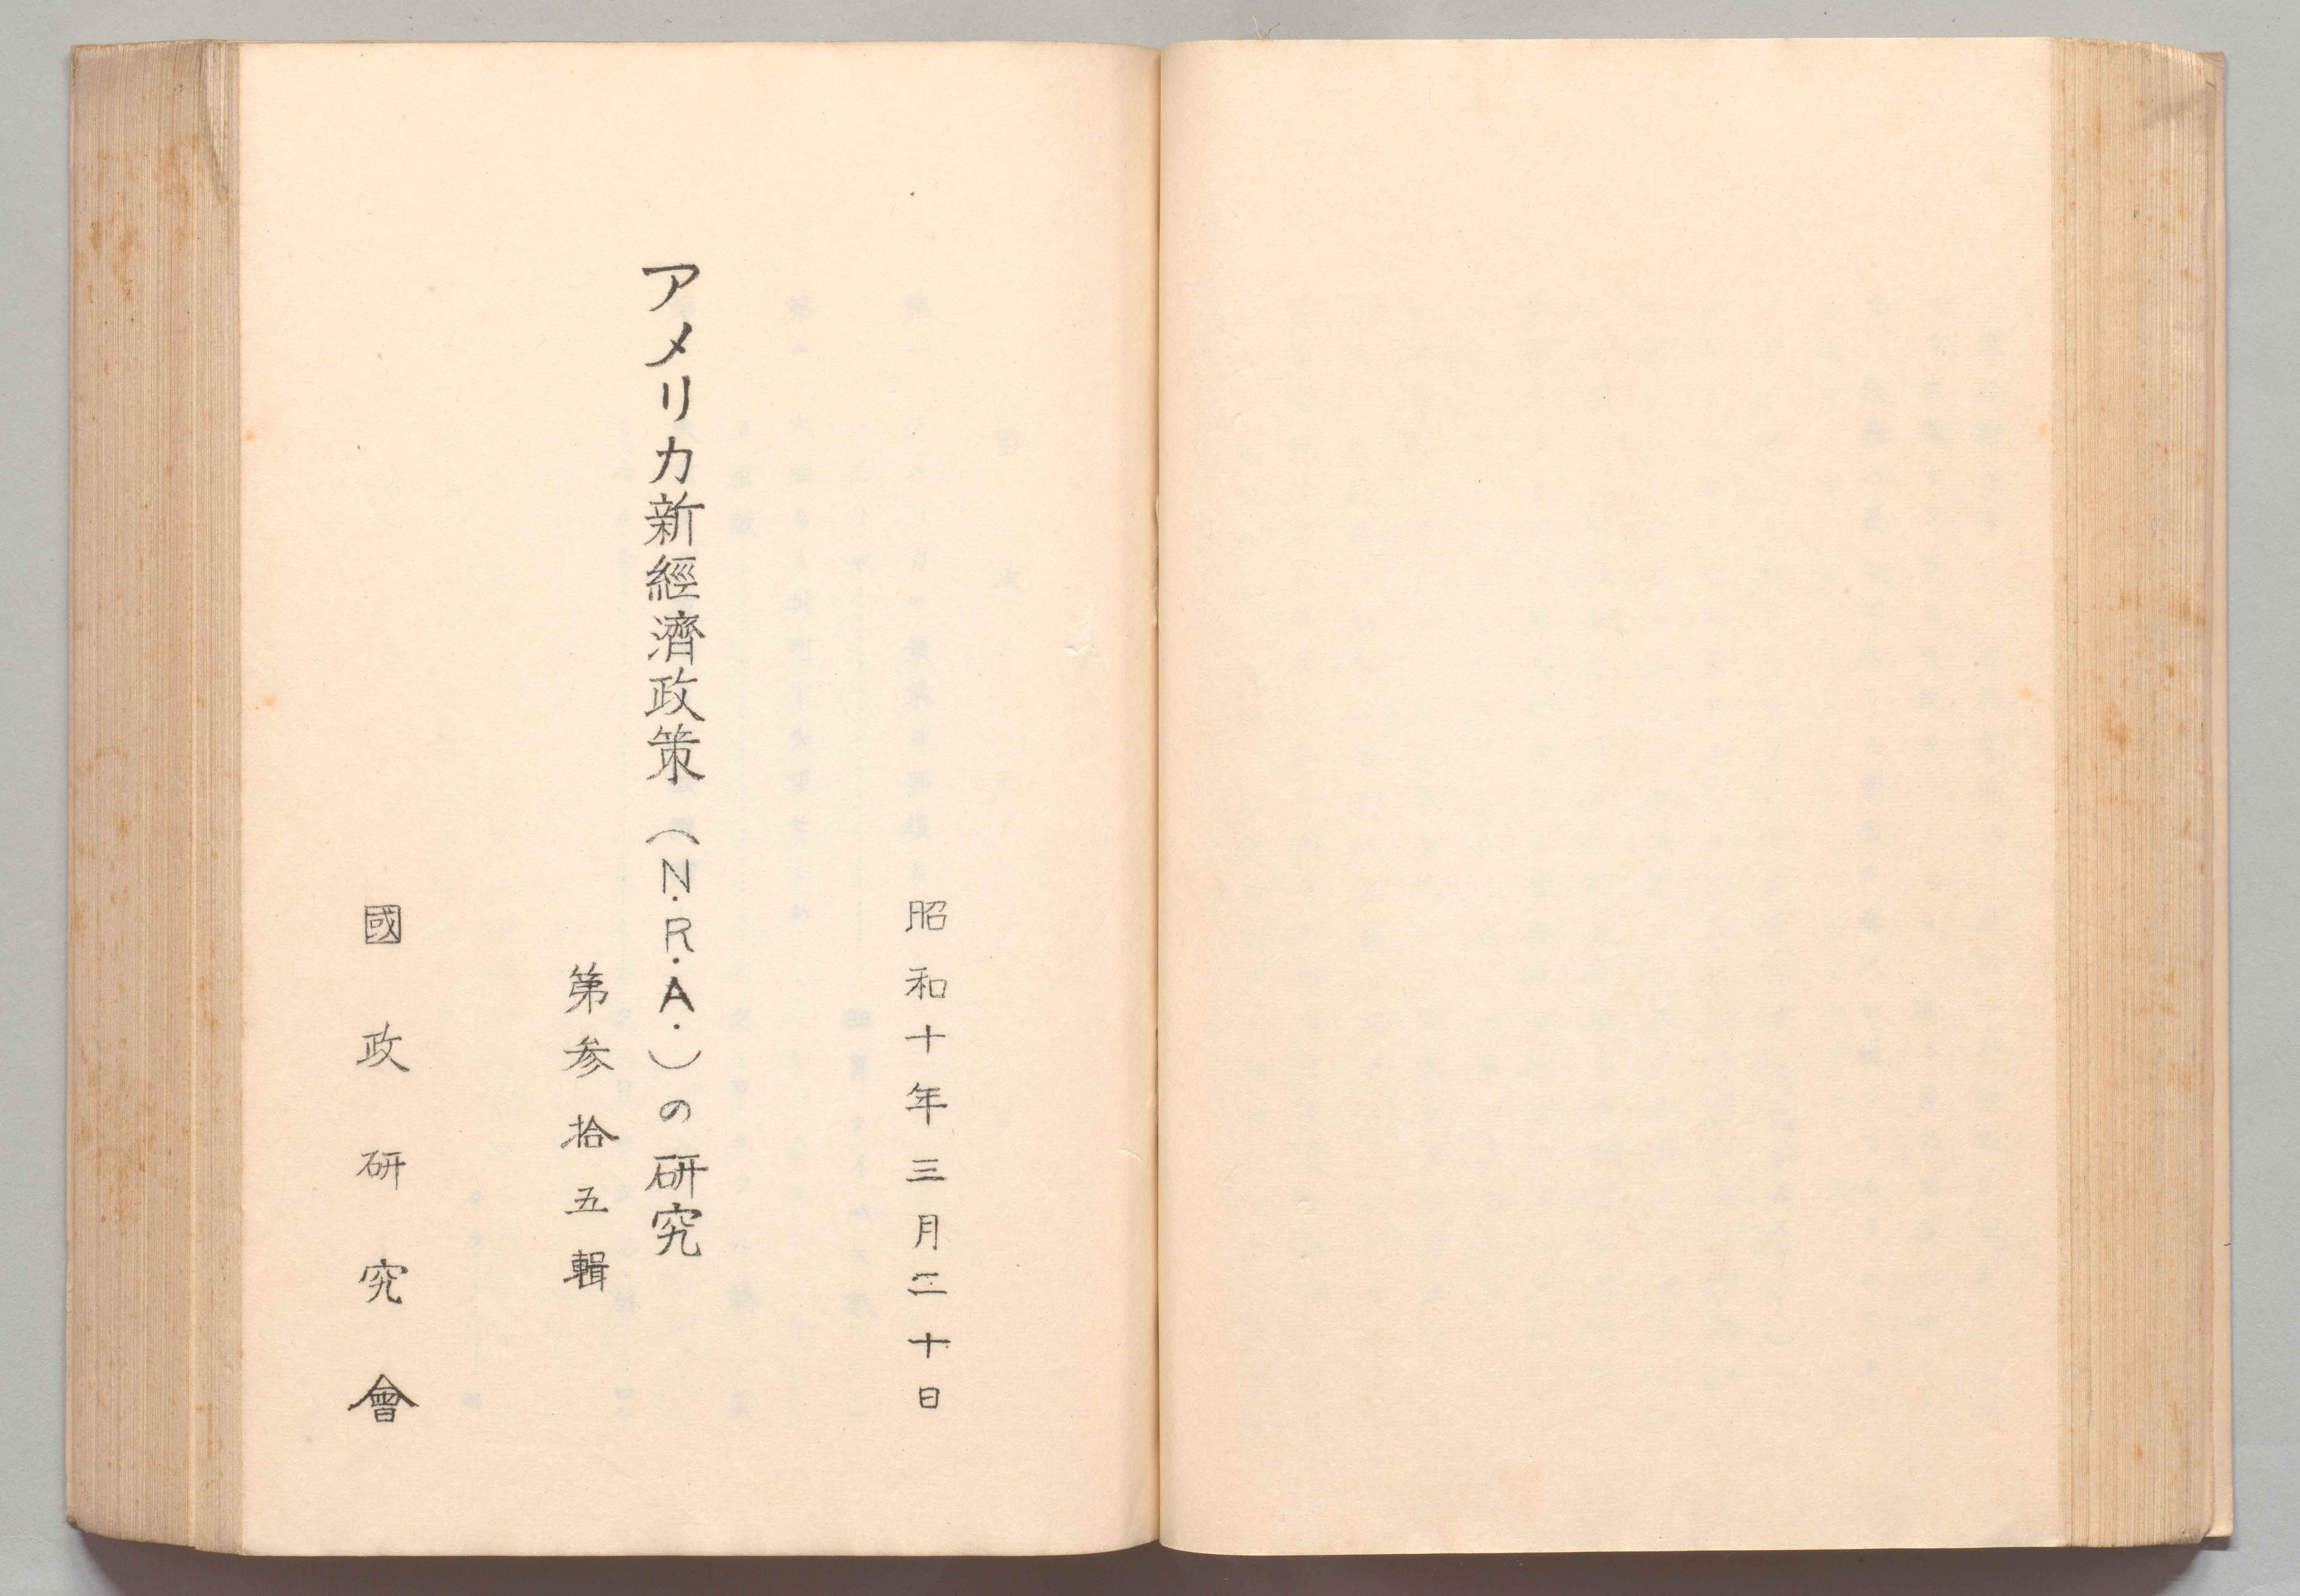 昭和十年三月二十日
アメリカ新經濟政策（N.R.A.）の研究
第参拾五輯
國政研究會